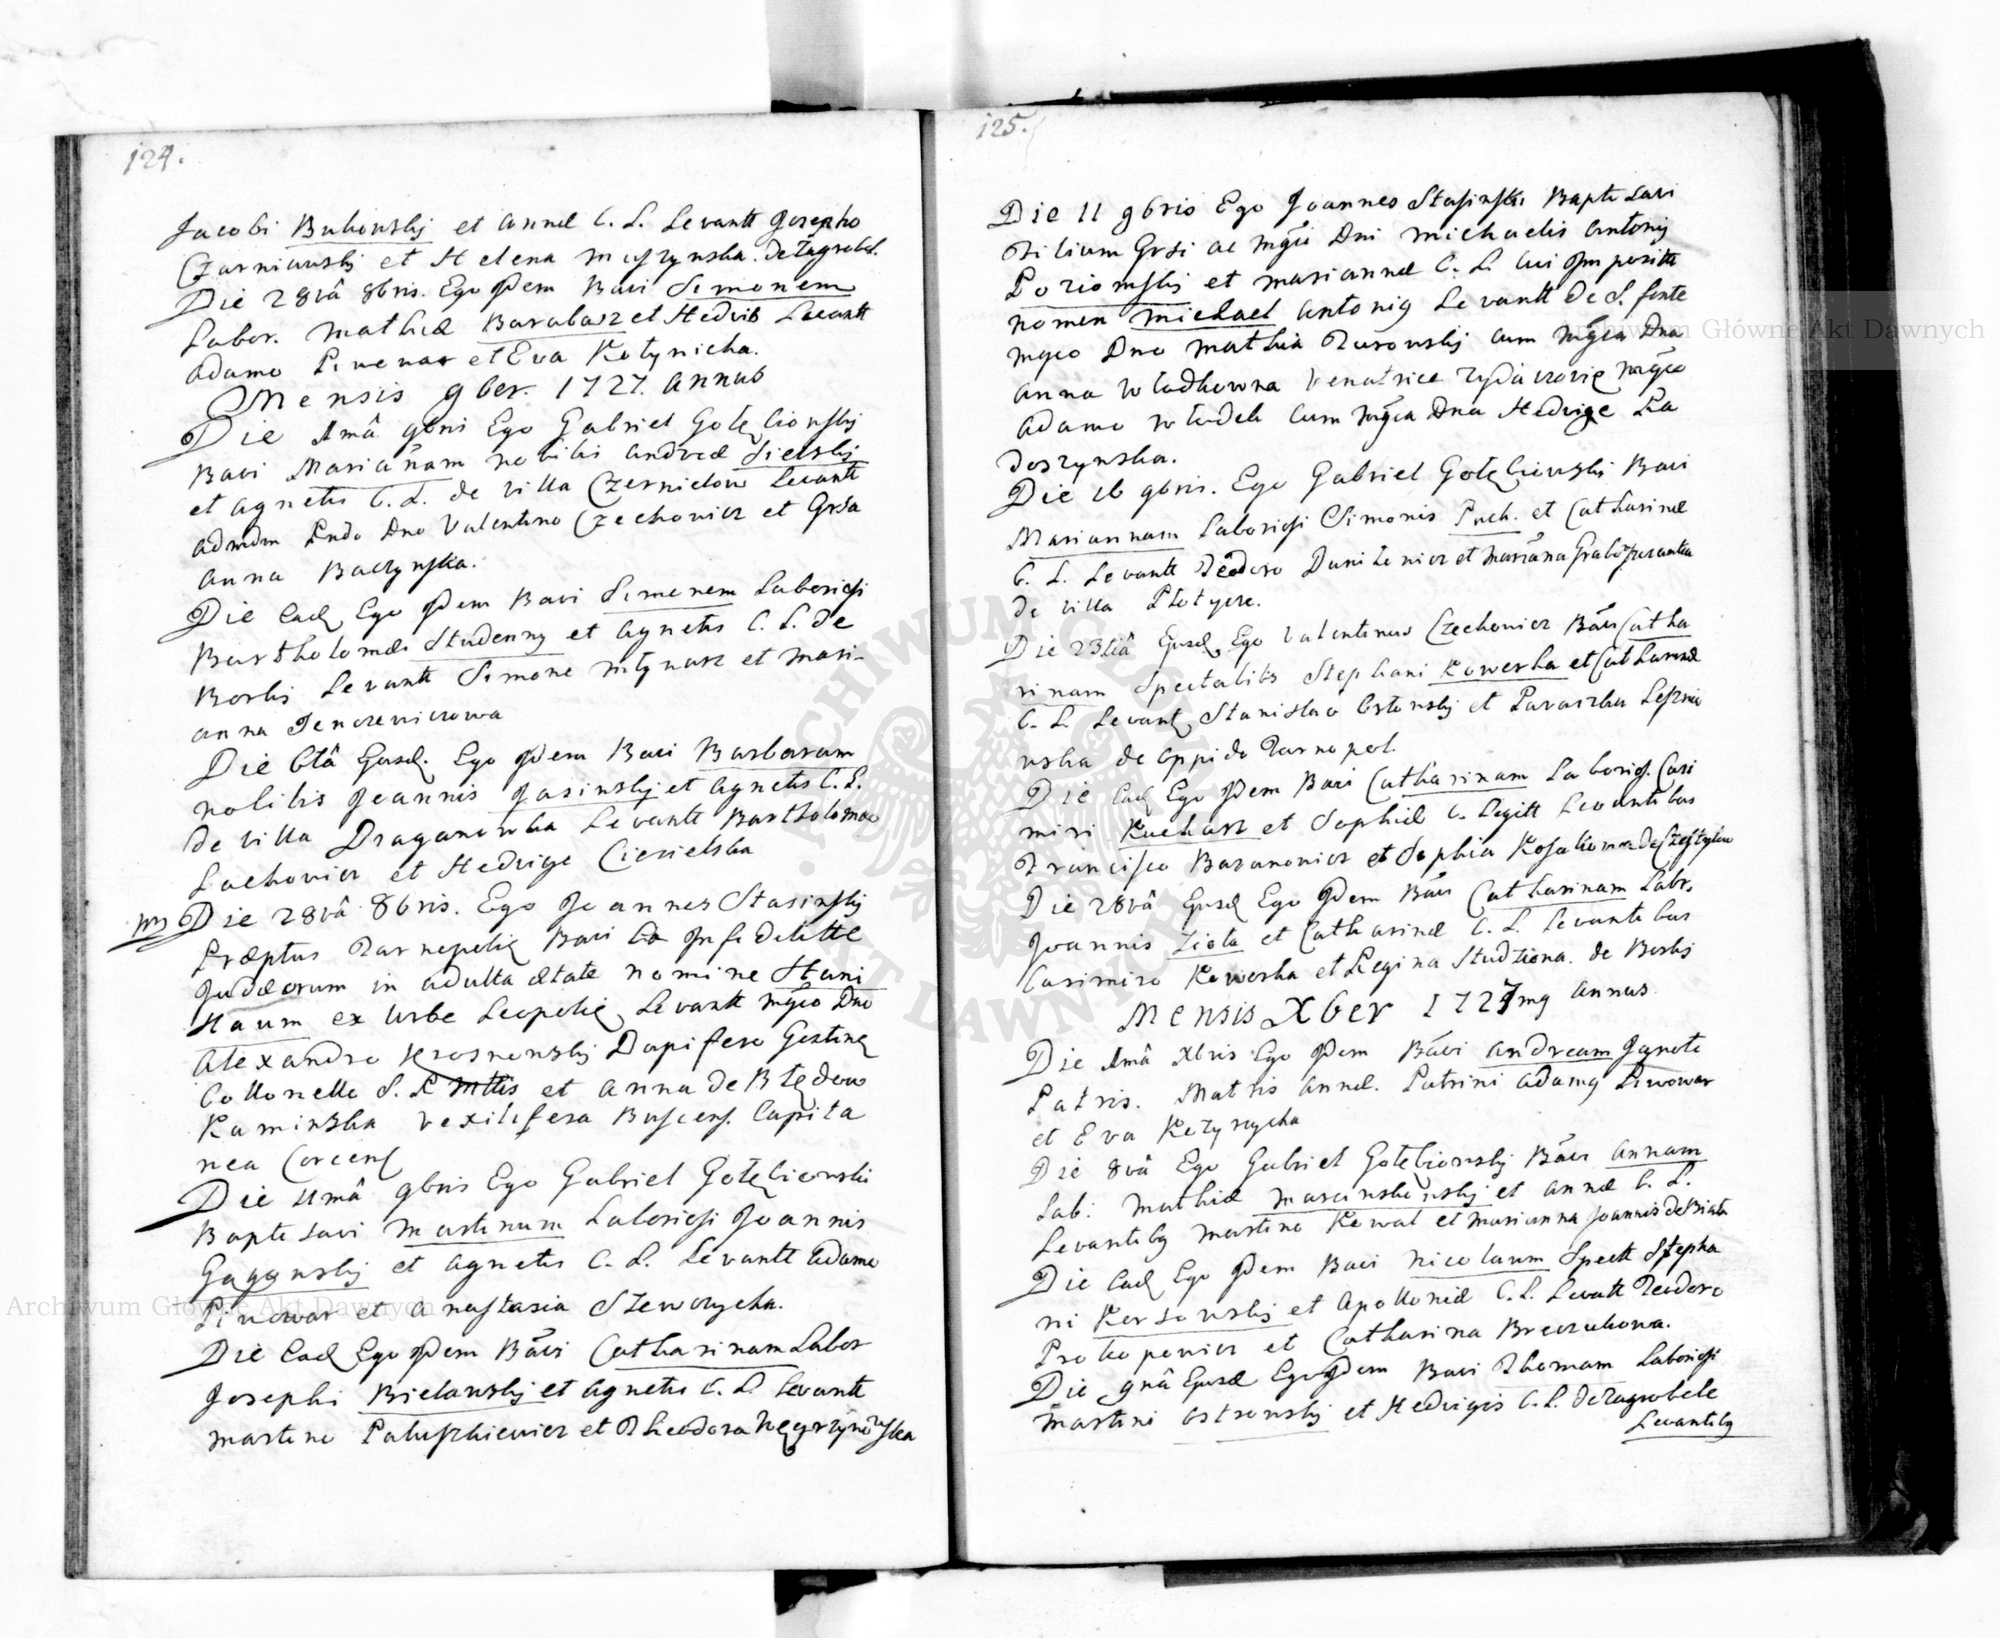 124.
Jacobi Bukowskij et Annæ C. L. Levantt Josepho
Czarniawskij et Helena Muszynska. de Zagrobel.
Die 28vâ 8bris. Ego Idem Bavi Simonem
Labor. Mathiæ Barabasz et Hedvis Levantt
Adamo Piwowar et Eva Kotynicka.
Mensis 9ber. 1727. Annus
Die 1mâ 9bris Ego Gabriel Gołęciowskij
Bavi Mariañam nobilis Andreæ Sielskij
et Agnetis C. L. de villa Czernielow Levantt
Admdm Rndo Dno Valentino Czechowicz et Grsa
Anna Baczynska.
Die Ead Ego Idem Bavi Simonem Laboriosi
Bartholomæi Studenny et Agnetis C. L. de
Borki Levantt Simone Mlynarz et Mari-
anna Jenczewiczowa
Die 6tâ Ejusd. Ego Idem Bavi Barbaram
nobilis Joannis Jasinskij et Agnetis C. L.
de villa Draganowka Levantt Bartholomæo
Lachowicz et Hedvige Ciesielska
NB Die 28vâ 8bris. Ego Joannes Stasinskij
Præptus Tarnopolię Bavi Ex Infidelitte
Judæorum in adulta ætate nomine Stani
slaum ex Urbe Leopolię Levantt Mgco Dno
Alexandro Krosnowskij Dapifero Gostinę
Collonello S. R. Mttis et Anna de Błędow
Kaminska Vexilifera Buscens. Capita
nea Corcens
Die 11mâ 9bris Ego Gabriel Gołęciowski
Baptisavi Martinum Laboriosi Joannis
Gagynskij et Agnetis C. L. Levantt Adamo
Piwowar et Anastasia Szeworycka.
Die Ead Ego Idem Bavi Catharinam Labor
Josephi Bielawskij et Agnetis C. L. Levantt
Martino Paluszkiewicz et Theodora Węgrzynowska
125.
Die 11 9bris Ego Joannes Stasinski Baptisavi
Filium Grsi ac Mgci Dni Michaelis Antonij
Pozionskij et Mariannæ C. L. cui Impositt
nomen Michael Antonig Levantt de S. fonte
Mgco Dno Mathia Turowskij cum Mgca Dna
Anna Władkowna Venatrice Zydaczovię Mgco
Adamo Władek cum Mgca Dna Hedvige Ra
doszynska.
Die 16 9bris. Ego Gabriel Gołęciewskij Bavi
Mariannam Laboriosi Simonis Puch. et Catharinæ
C. L. Levantt Teodoro Danilewicz et Mariana
de villa Płotycze.
Die 23tiâ Ejusd Ego Valentinus Czechowicz Bavi Catha
rinam Spectabilis Stephani Kowerka et Catharinæ
C. L. Levant Stanislao Ostowskij et Paraszka Leśnio
wska de oppido Tarnopol.
Die Ead Ego Idem Bavi Catharinam Laborios. Casi
miri Kucharz et Sophiæ C. Legitt Levantibus
Francisco Baranowicz et Sophia
Die 28vâ Ejusd Ego Idem Bavi Catharinam Labr.
Joannis Zioła et Catharinæ C. L. Levantibus
Casimiro Kowerka et Regina Studziona. de Borkij
Mensis Xber 1727mg Annus
Die 1mâ Xbris Ego Idem Bavi Andream Ignote
Patris. Matris Annæ. Patrini Adamg Piwowar
et Eva Kotynycka
Die 8vâ Ego Gabriel Gołęciowskij Bavi Annam
Lab: Mathiæ et Annæ C. L.
Levantibg Martino Kowal et Marianna Joannis de Biała
Die Ead Ego Idem Bavi Nicolaum Spectt Stepha
ni Korsowskij et Apolloniæ C. L. Levantt Teodoro
Prokopowicz et Catharina Breczukowa.
Die 9nâ Ejusd Ego Idem Bavi Thomam Laboriosi
Martini Ostrowskij et Hedvigis C. L. de Zagrobele
Levantibg
Archiwum Główne Akt Dawnych
Archiwum Główne Akt Dawnych
ARCHIWUM GŁÓWNE AKT DAWNYCH